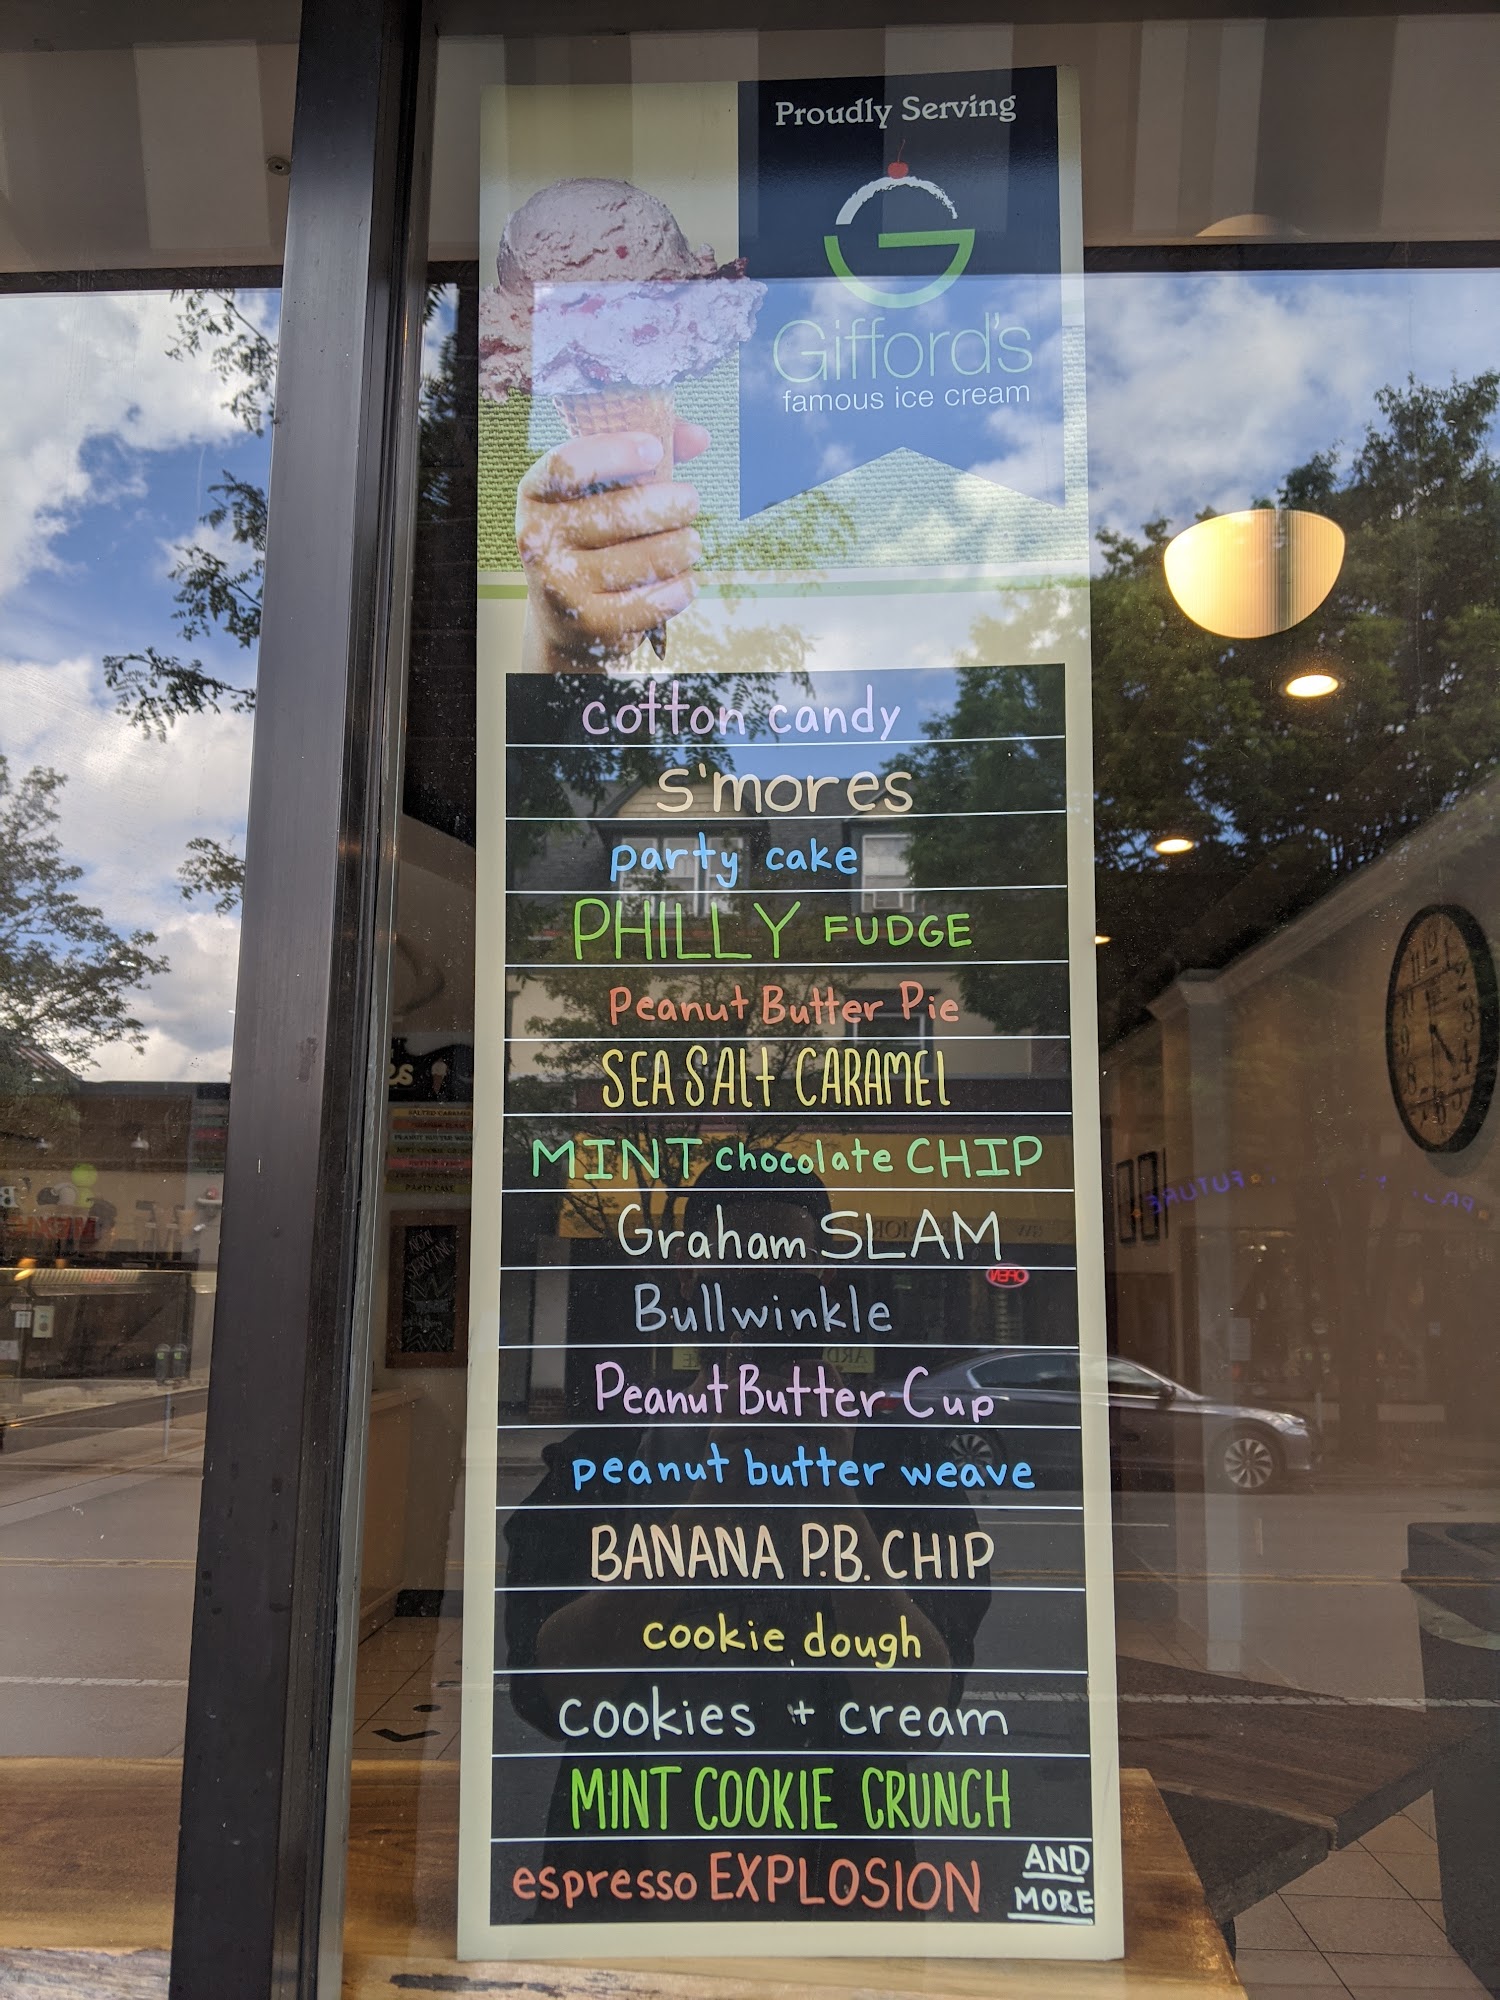 Proudly Serving
Gifford's
famous ice cream
cotton candy
s'mores
party cake
PHILLY FUDGE
Peanut Butter Pie
SEA SALt CARAMEL
MINT chocolate CHIP
Graham SLAM
Bullwinkle
Peanut Butter Cup
peanut butter weave
BANANA P.B. CHIP
cookie dough
cookies + cream
MINT COOKIE CRUNCH
espresso EXPLOSION
AND
MORE
OPEN
FUTURE
SALTED CARAMEL
PARTY CAKE
NOW
SERVING